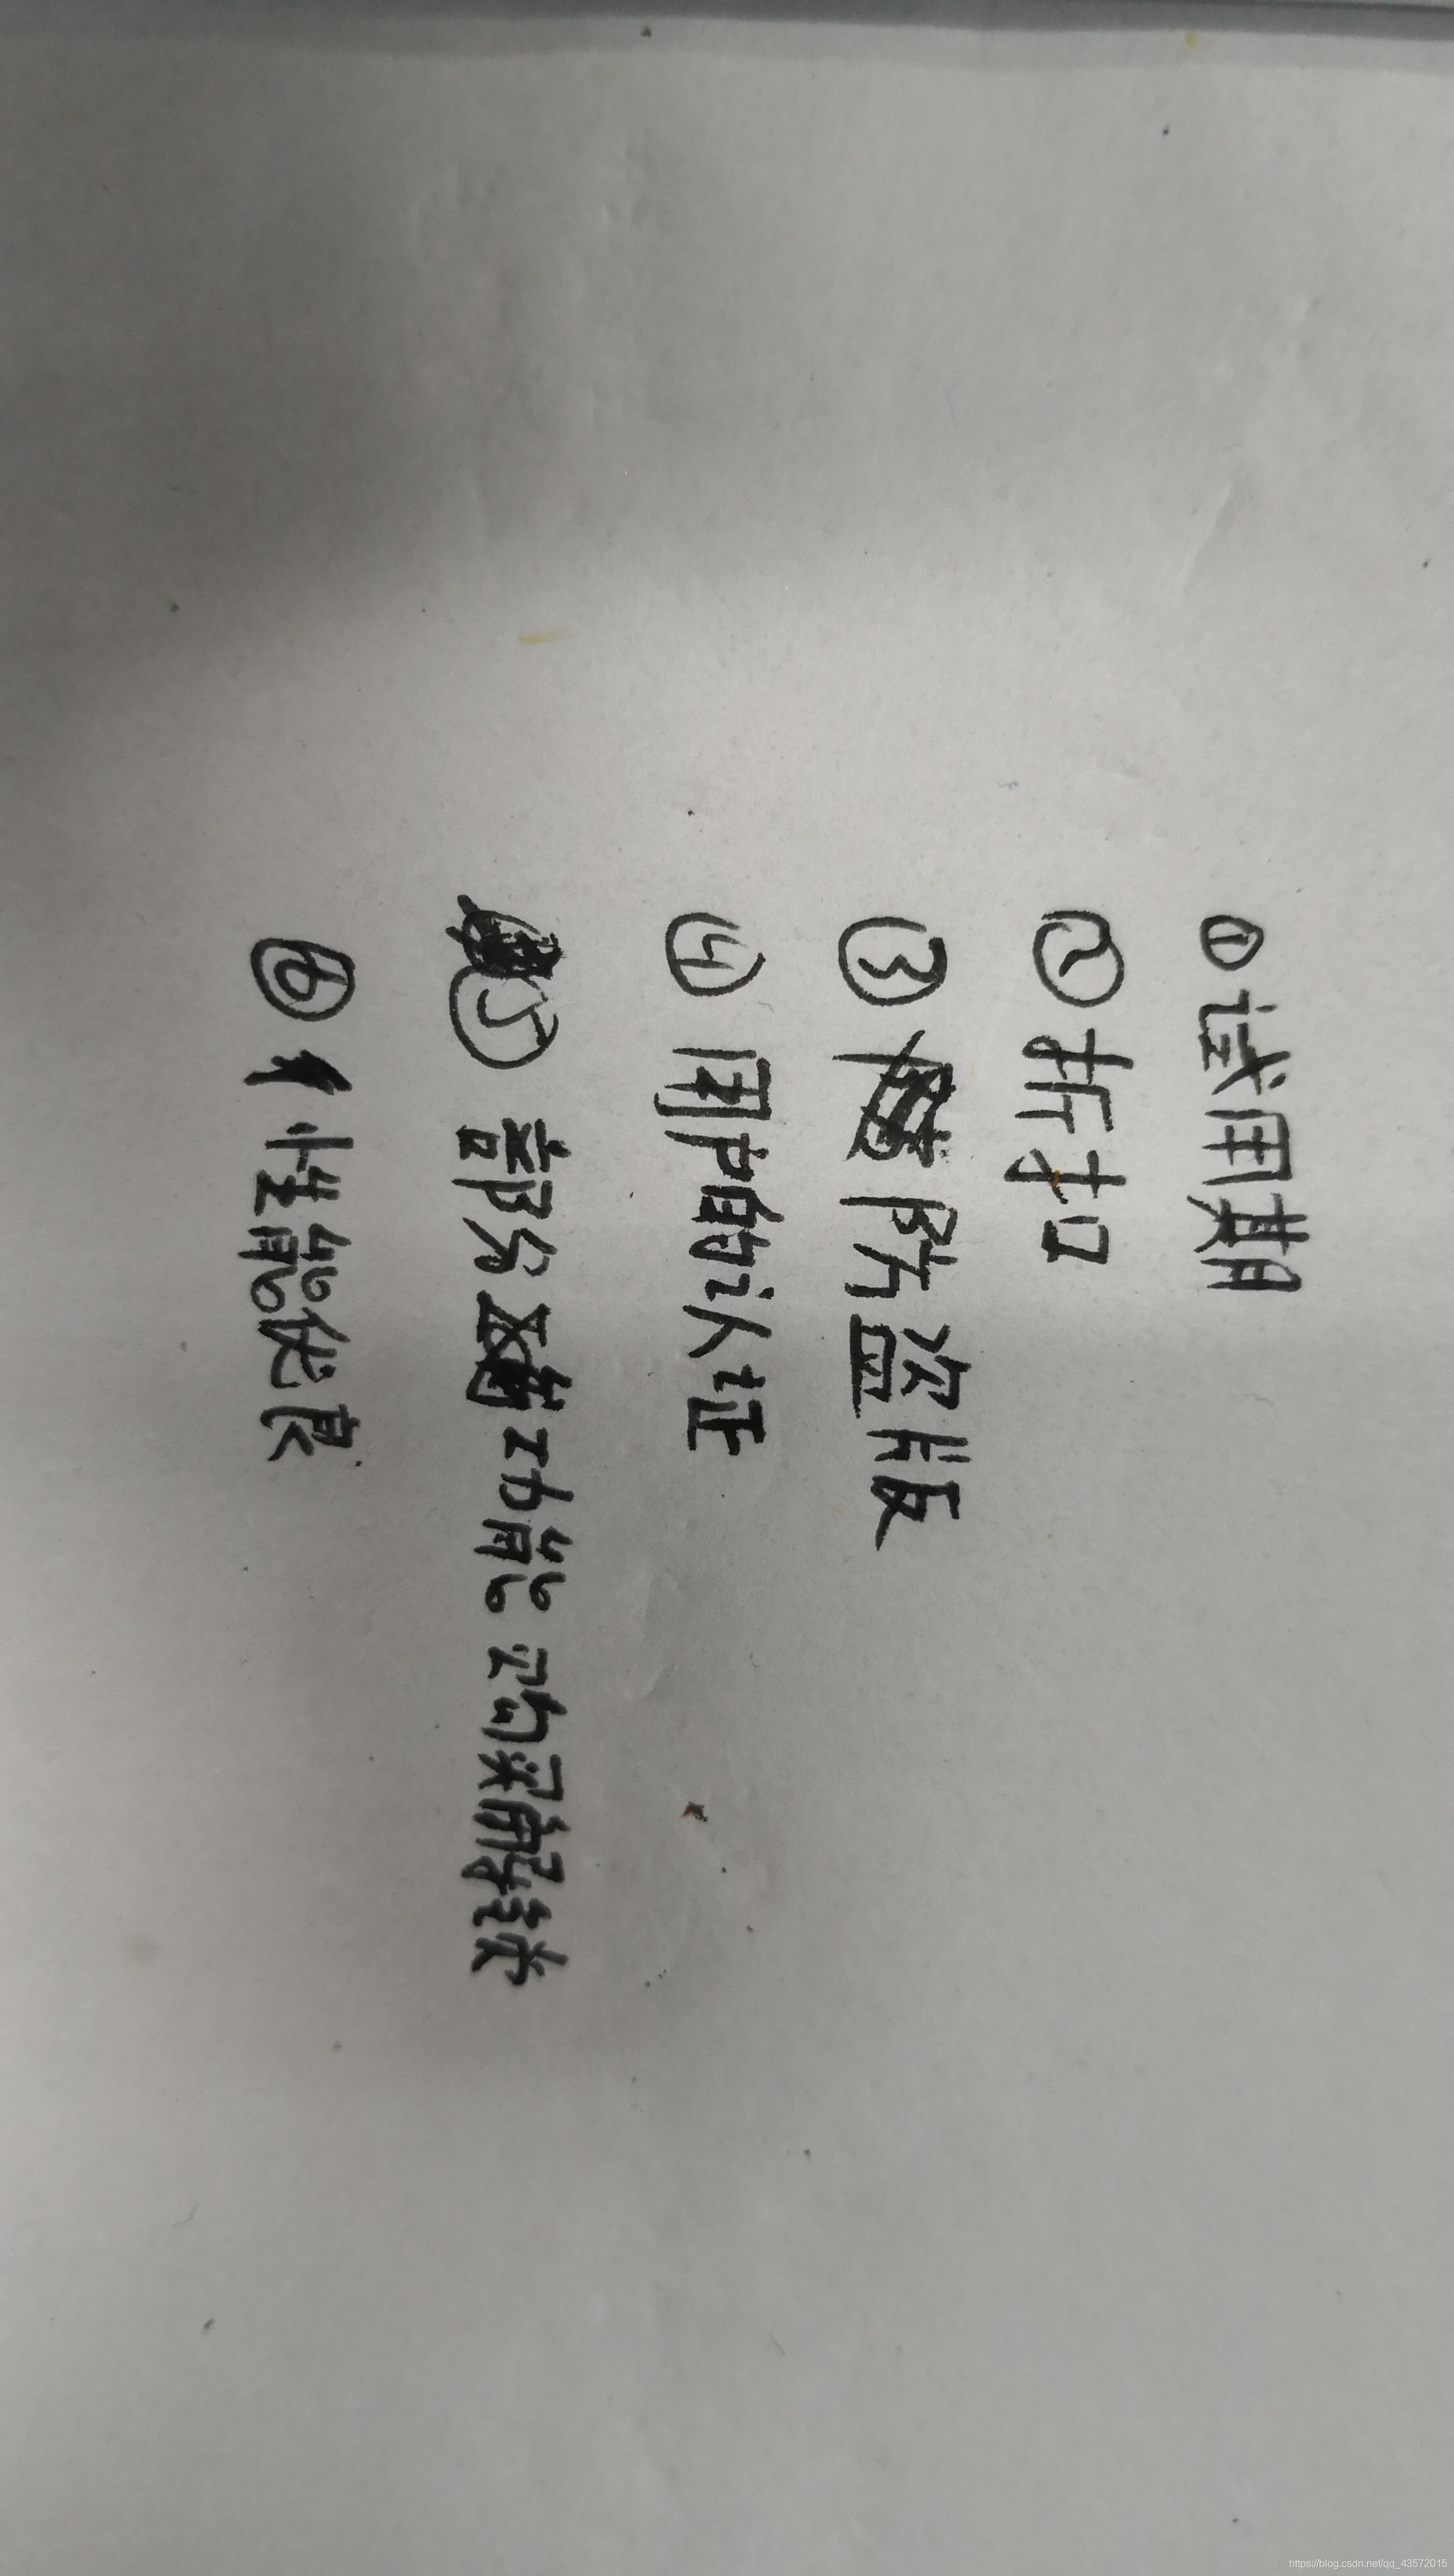 ①试用期
②折扣
③防盗版
④用户的认证
⑤部分功能 购买解锁
⑥性能优良
https://blog.csdn.net/qq_43572015